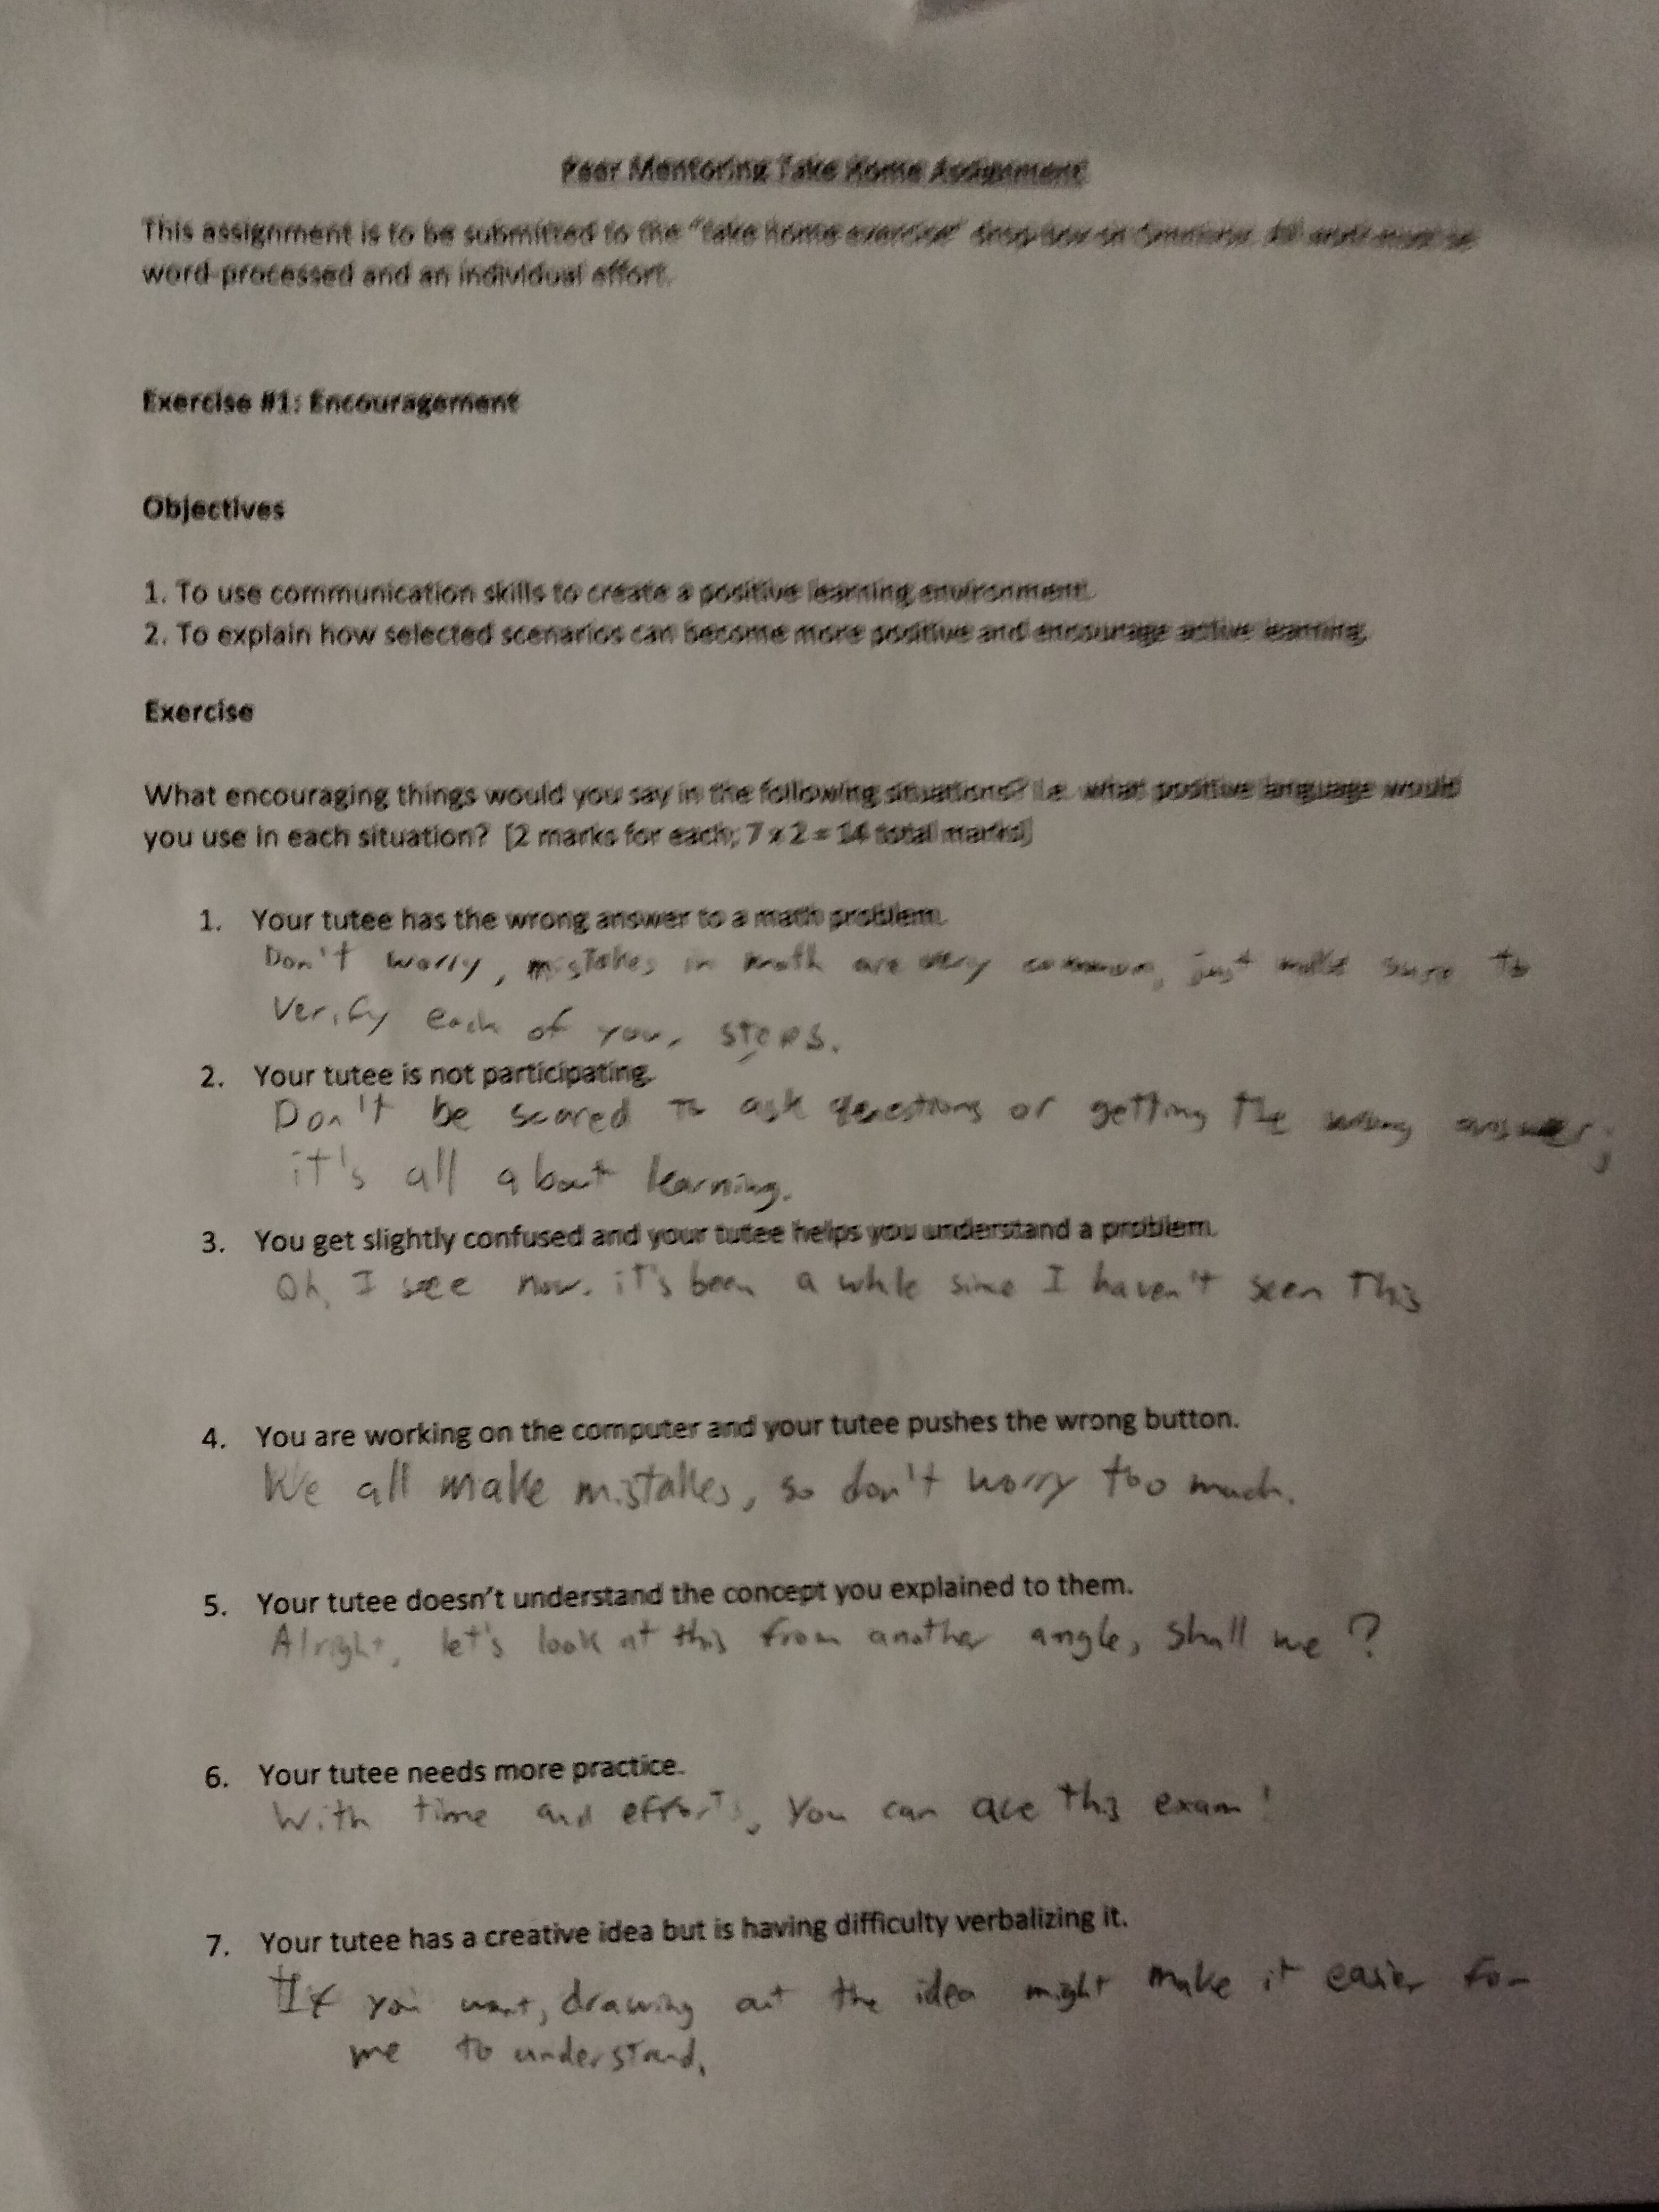 Peer Mentoring Take Home Assignment
This assignment is to be submitted to the "take home exercise" drop box on Omnivox. All work must be
word-processed and an individual effort.
Exercise #1: Encouragement
Objectives
1. To use communication skills to create a positive learning environment.
2. To explain how selected scenarios can become more positive and encourage active learning.
Exercise
What encouraging things would you say in the following situations? I.e. what positive language would
you use in each situation? [2 marks for each; 7 x 2 = 14 total marks]
1. Your tutee has the wrong answer to a math problem.
Don't worry, mistakes in math are very common, just make sure to
verify each of your steps.
2. Your tutee is not participating.
Don't be scared to ask questions or getting the wrong answer;
it's all about learning.
3. You get slightly confused and your tutee helps you understand a problem.
Oh, I see now. it's been a while since I haven't seen this
4. You are working on the computer and your tutee pushes the wrong button.
We all make mistakes, so don't worry too much.
5. Your tutee doesn't understand the concept you explained to them.
Alright, let's look at this from another angle, shall we?
6. Your tutee needs more practice.
With time and efforts, you can ace this exam!
7. Your tutee has a creative idea but is having difficulty verbalizing it.
If you want, drawing out the idea might make it easier for
me to understand.